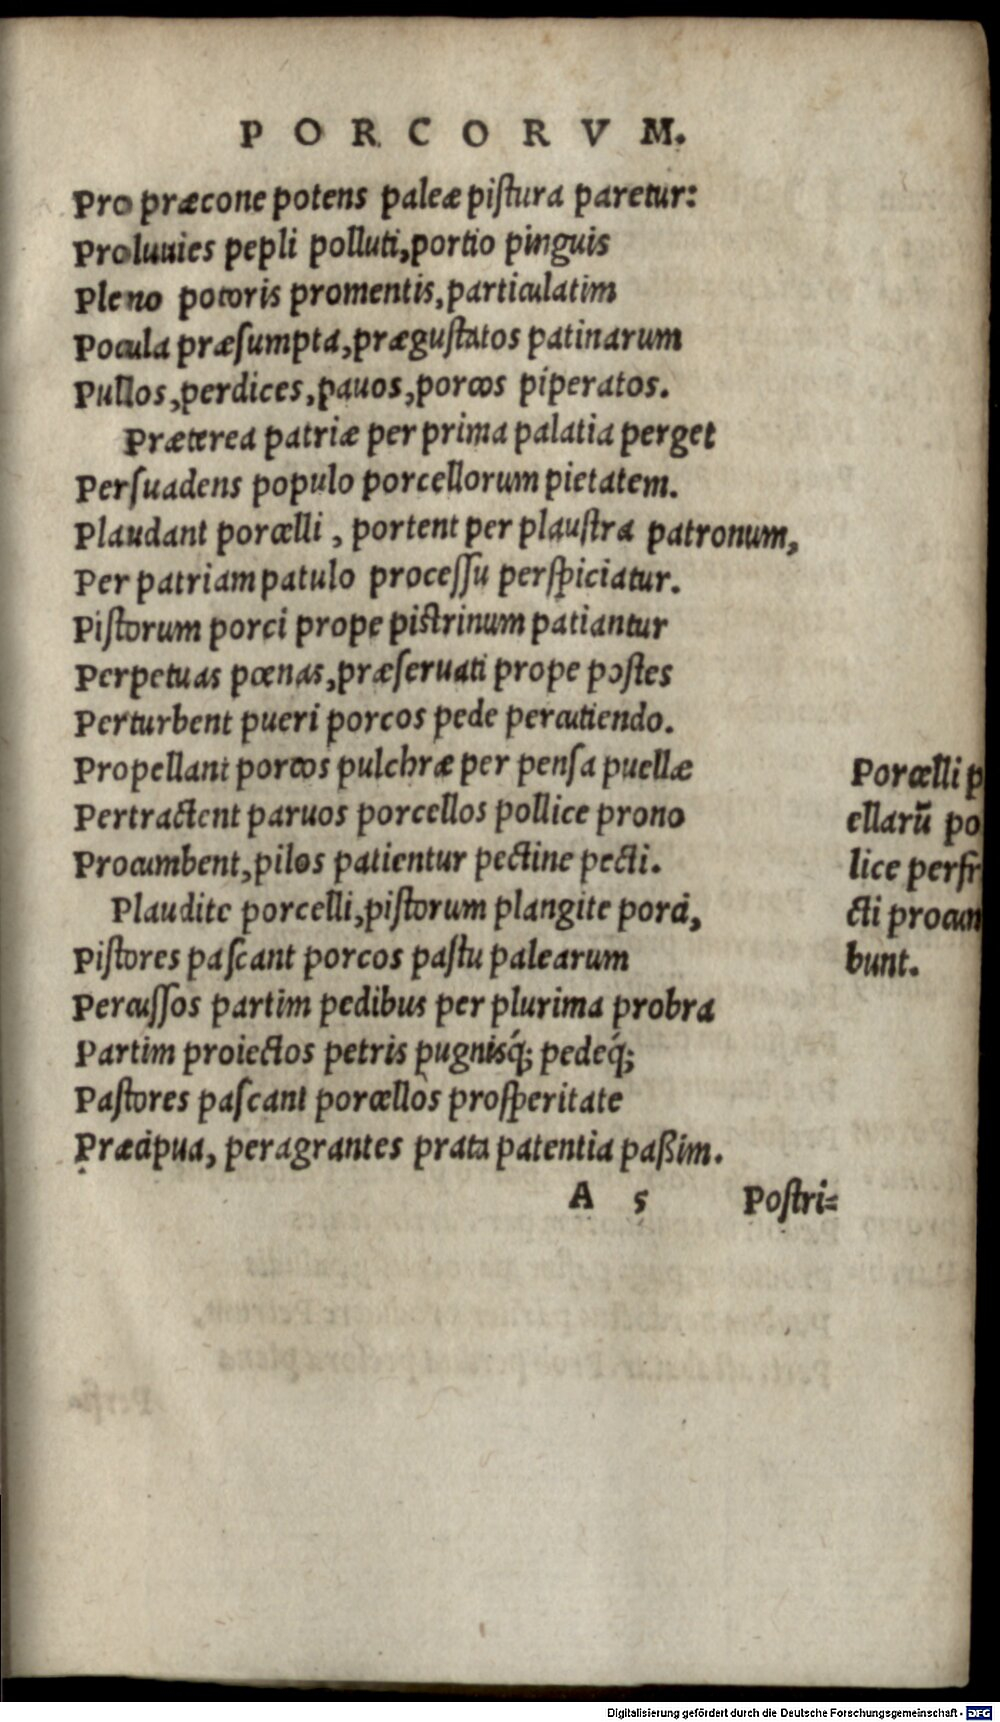 PORCORVM.
Pro præcone potens paleæ piſtura paretur:
Proluuies pepli polluti, portio pinguis
Pleno potoris promentis, particulatim
Pocula præſumpta, præguſtatos patinarum
Pullos, perdices, pauos, porcos piperatos.
Præterea patriæ per prima palatia perget
Perſuadens populo porcellorum pietatem.
Plaudant porcelli, portent per plauſtra patronum,
Per patriam patulo proceſſu perſpiciatur.
Piſtorum porci prope pictrinum patiantur
Perpetuas pœnas, præſeruati prope poſtes
Perturbent pueri porcos pede percutiendo.
Propellant porcos pulchræ per penſa puellæ
Pertractent paruos porcellos pollice prono
Procumbent, pilos patientur pectine pecti.
Plaudite porcelli, piſtorum plangite porci,
Piſtores paſcant porcos paſtu palearum
Percuſſos partim pedibus per plurima probra
Partim proiectos petris pugnisq́; pedeq́;
Paſtores paſcant porcellòs proſperitate
Præcipua, peragrantes prata patentia paßim.
Porcelli p
ellarū po
lice perfr
cti procum
bunt.
A 5 Poſtri-
Digitalisierung gefördert durch die Deutsche Forschungsgemeinschaft - DFG